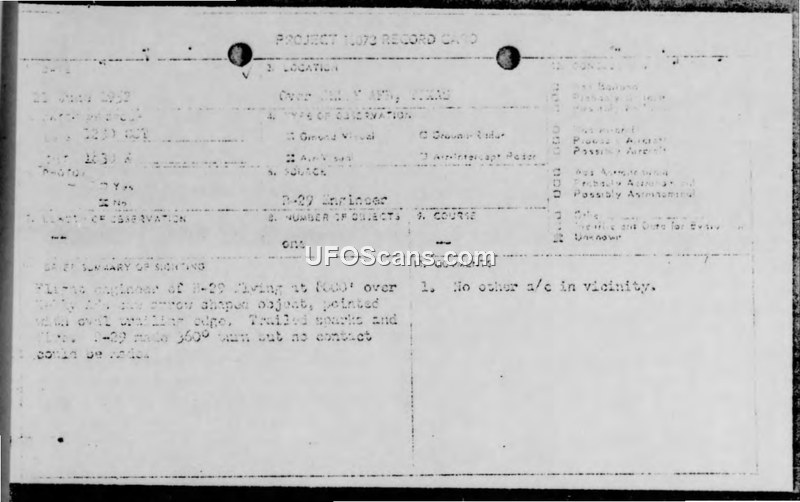 PROJECT 10073 RECORD CARD
2. LOCATION
June 1952
Over KELLY AFB, TEXAS
4. TYPE OF OBSERVATION
Ground Visual
Ground Radar
Air Visual
Air Intercept Radar
PHOTOS
Yes
No
SOURCE
B-29 Engineer
7. LENGTH OF OBSERVATION
8. NUMBER OF OBJECTS
9. COURSE
--
one
--
Was Balloon
Probably Balloon
Possibly Balloon
Was Aircraft
Probably Aircraft
Possibly Aircraft
Was Astronomical
Probably Astronomical
Possibly Astronomical
Other
Insufficient Data for Evaluation
Unknown
UFOScans.com
BRIEF SUMMARY OF SIGHTING
Flight engineer of B-29 flying at 8000' over
Kelly AFB saw arrow shaped object, pointed
when oval trailing edge. Trailed sparks and
fire. B-29 made 360° turn but no contact
could be made.
1. No other a/c in vicinity.